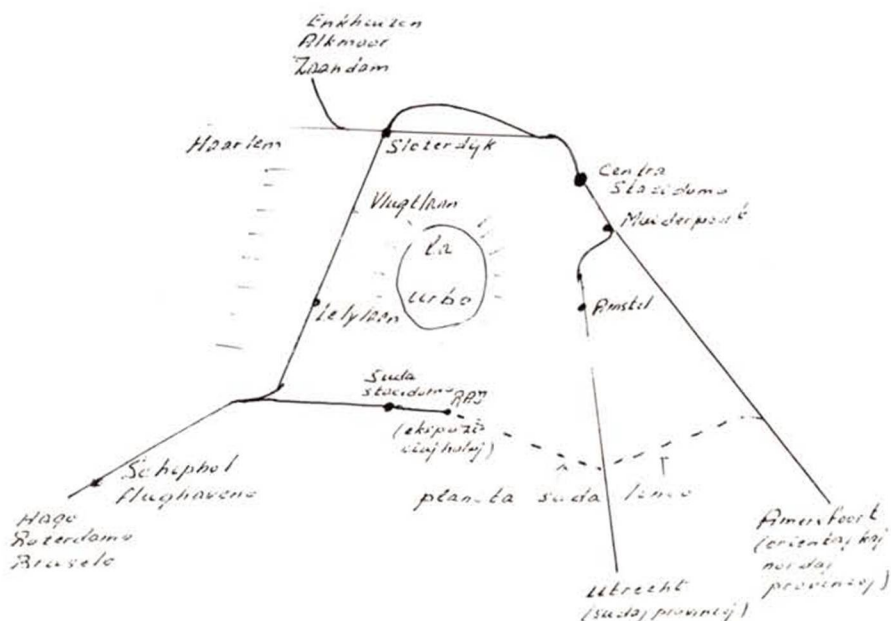 Enkhuizen
Alkmaar
Zaandam
Haarlem
Sloterdyk
Centra
Stacidomo
Vlugtlaan
Muiderpoort
La
urbo
Lelylaan
Amstel
Suda
stacidomo
RAJ
(ekspozi-
ciaj haloj)
Schiphol
flughaveno
planata suda lineo
Hago
Roterdamo
Bruselo
Amersfoort
(orientaj kaj
nordaj
provincoj)
Utrecht
(sudaj provincoj)